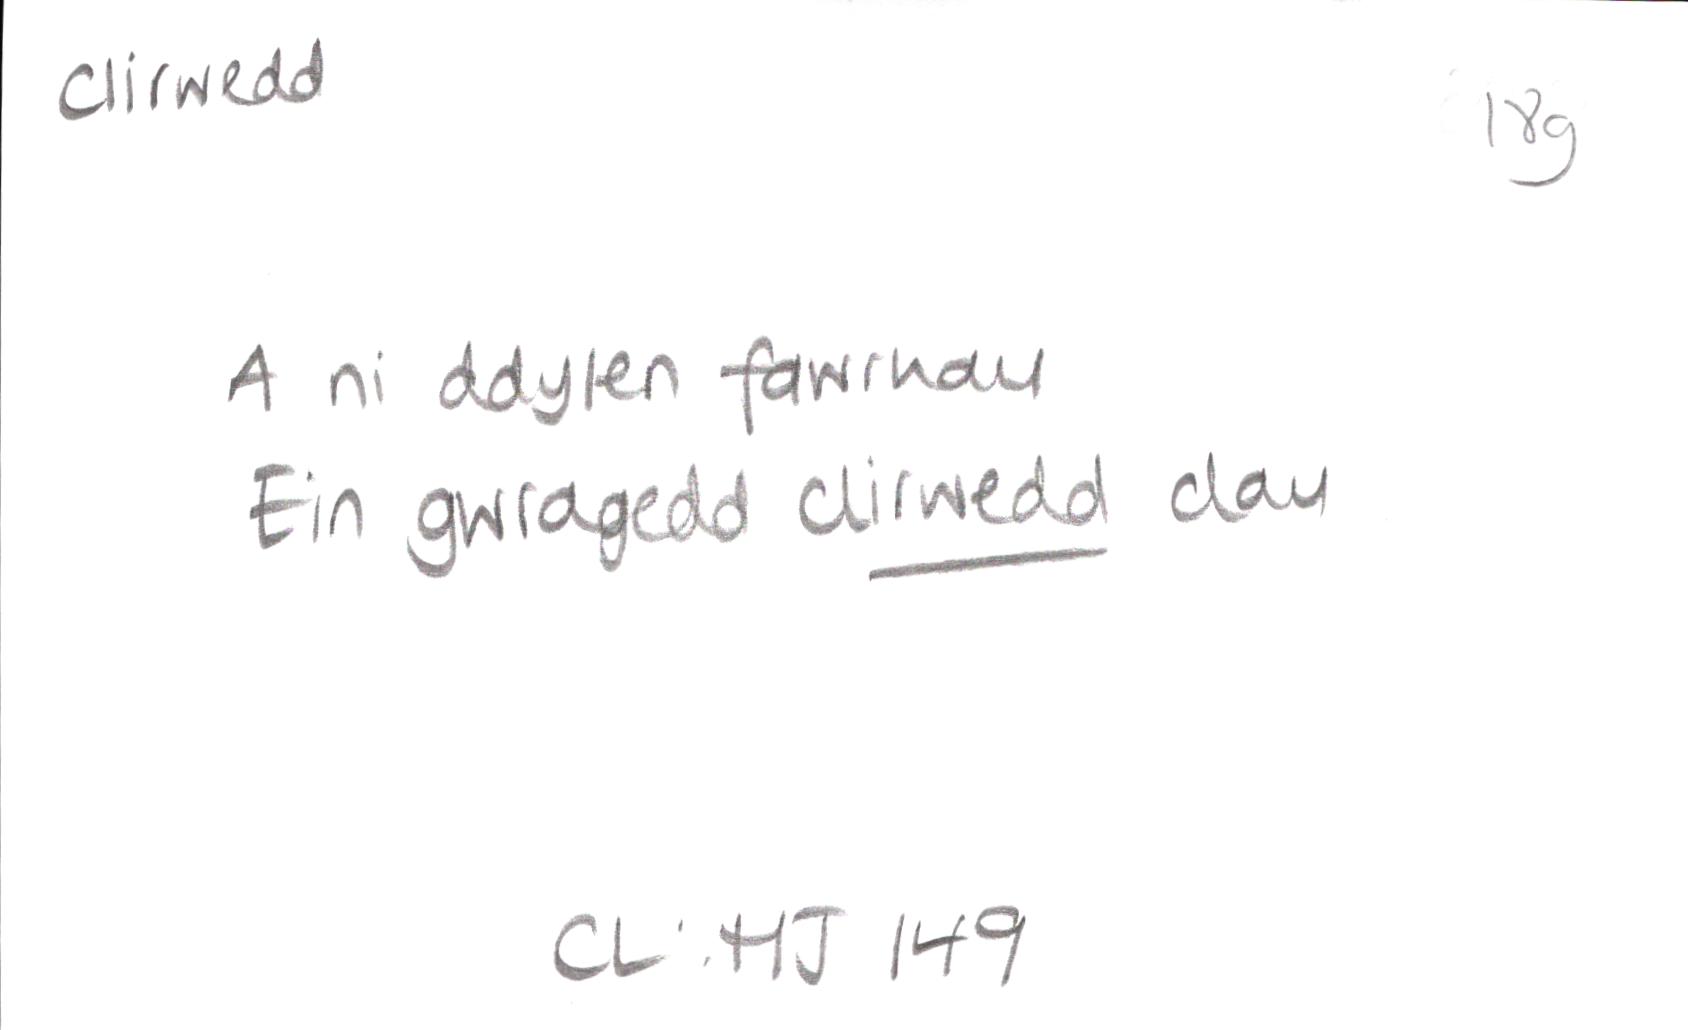 Clirwedd
18g
A ni ddylen fawrhau
Ein gwragedd clirwedd clau
CL: HJ 149